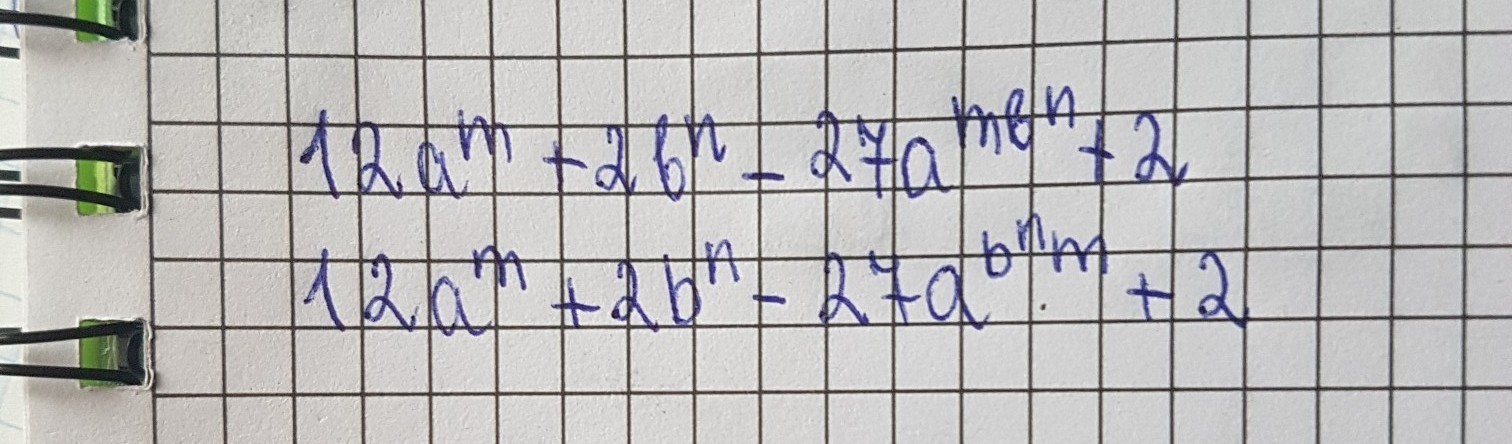 12a^m + 2b^n - 27a^{mb^n} + 2
12a^m + 2b^n - 27a^{b^n m} + 2